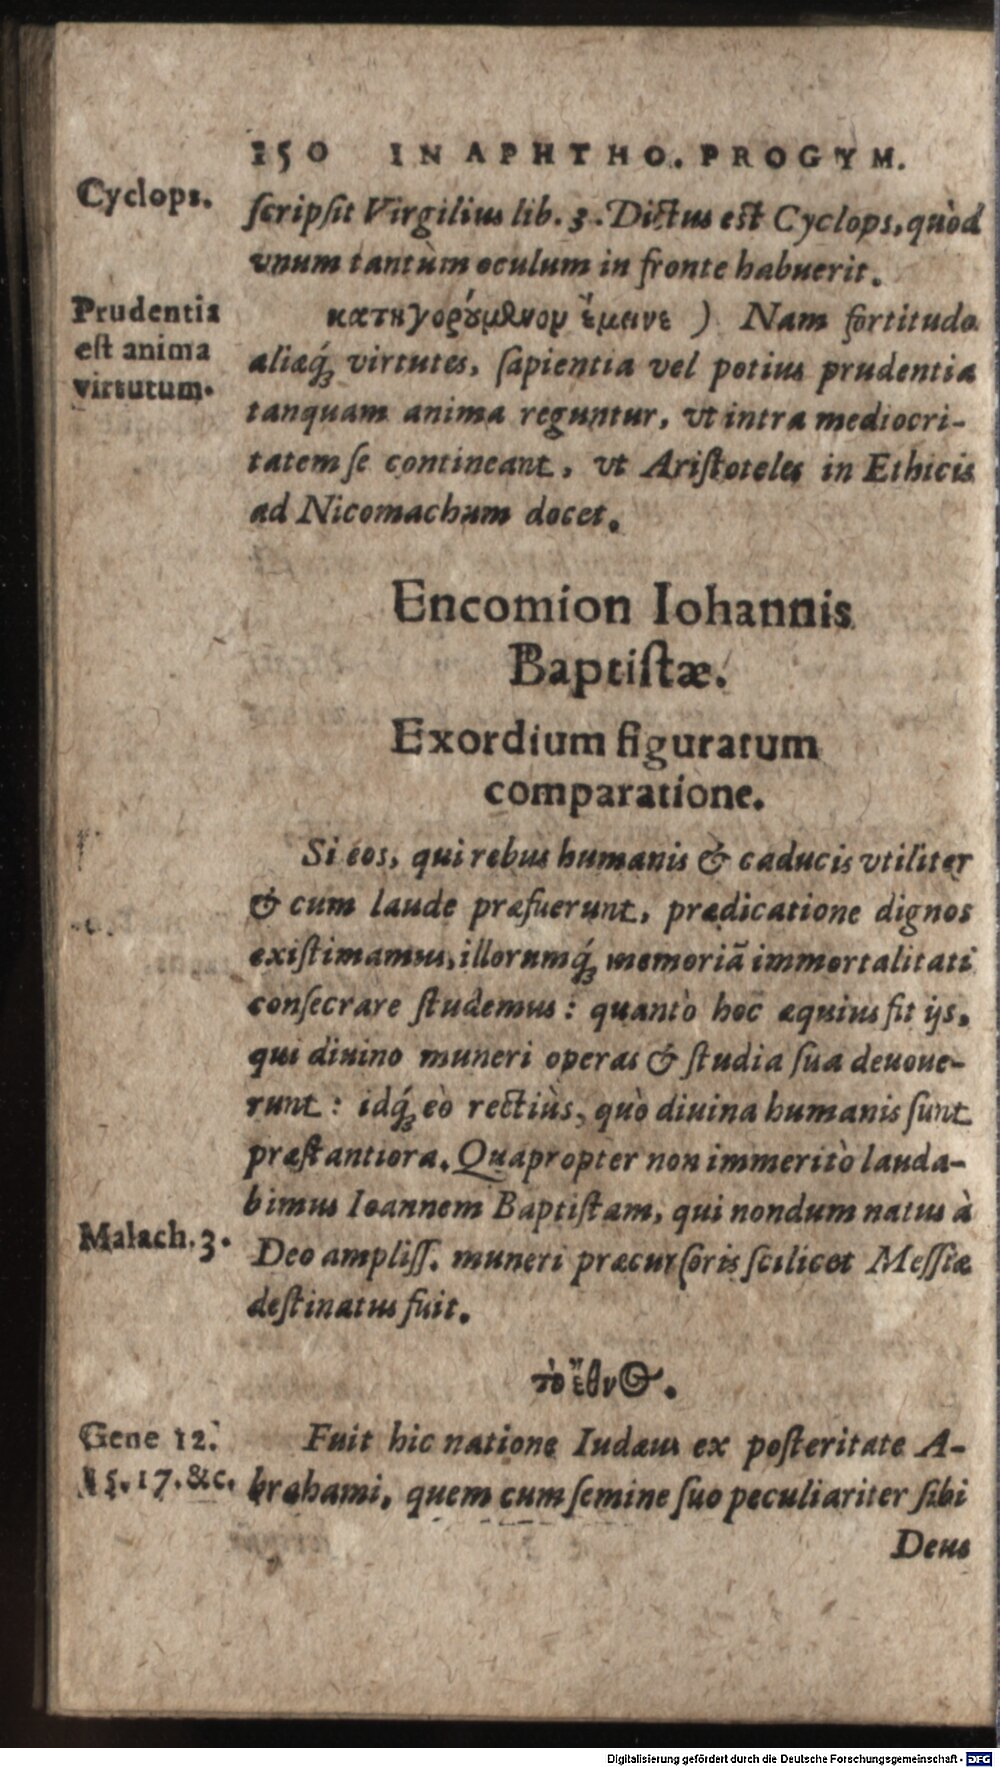 150 IN APHTHO. PROGYM.
Cyclops.
ſcripſit Virgilius lib. 3. Dictus eſt Cyclops, quòd
vnum tantùm oculum in fronte habuerit.
Prudentia
eſt anima
virtutum.
κατηγορούμενον ἔμεινε ) Nam fortitudo
aliæq́; virtutes, ſapientia vel potius prudentia
tanquam anima reguntur, vt intra mediocri-
tatem ſe contineant, vt Ariſtoteles in Ethicis
ad Nicomachum docet.
Encomion Iohannis
Baptiſtæ.
Exordium figuratum
comparatione.
Si eos, qui rebus humanis & caducis vtiliter
& cum laude præfuerunt, prædicatione dignos
exiſtimamus, illorumq́; memoriã immortalitati
conſecrare ſtudemus: quantò hoc æquius fit ijs,
qui diuino muneri operas & ſtudia ſua deuoue-
runt: idq́; eò rectiùs, quò diuina humanis ſunt
præſtantiora. Quapropter non immeritò lauda-
bimus Ioannem Baptiſtam, qui nondum natus à
Malach. 3.
Deo ampliſſ. muneri præcurſoris ſcilicet Meſſiæ
deſtinatus fuit.
τὸ ἔθνος.
Gene 12.
15. 17. &c.
Fuit hic natione Iudæus ex poſteritate A-
brahami, quem cum ſemine ſuo peculiariter ſibi
Deus
Digitalisierung gefördert durch die Deutsche Forschungsgemeinschaft - DFG